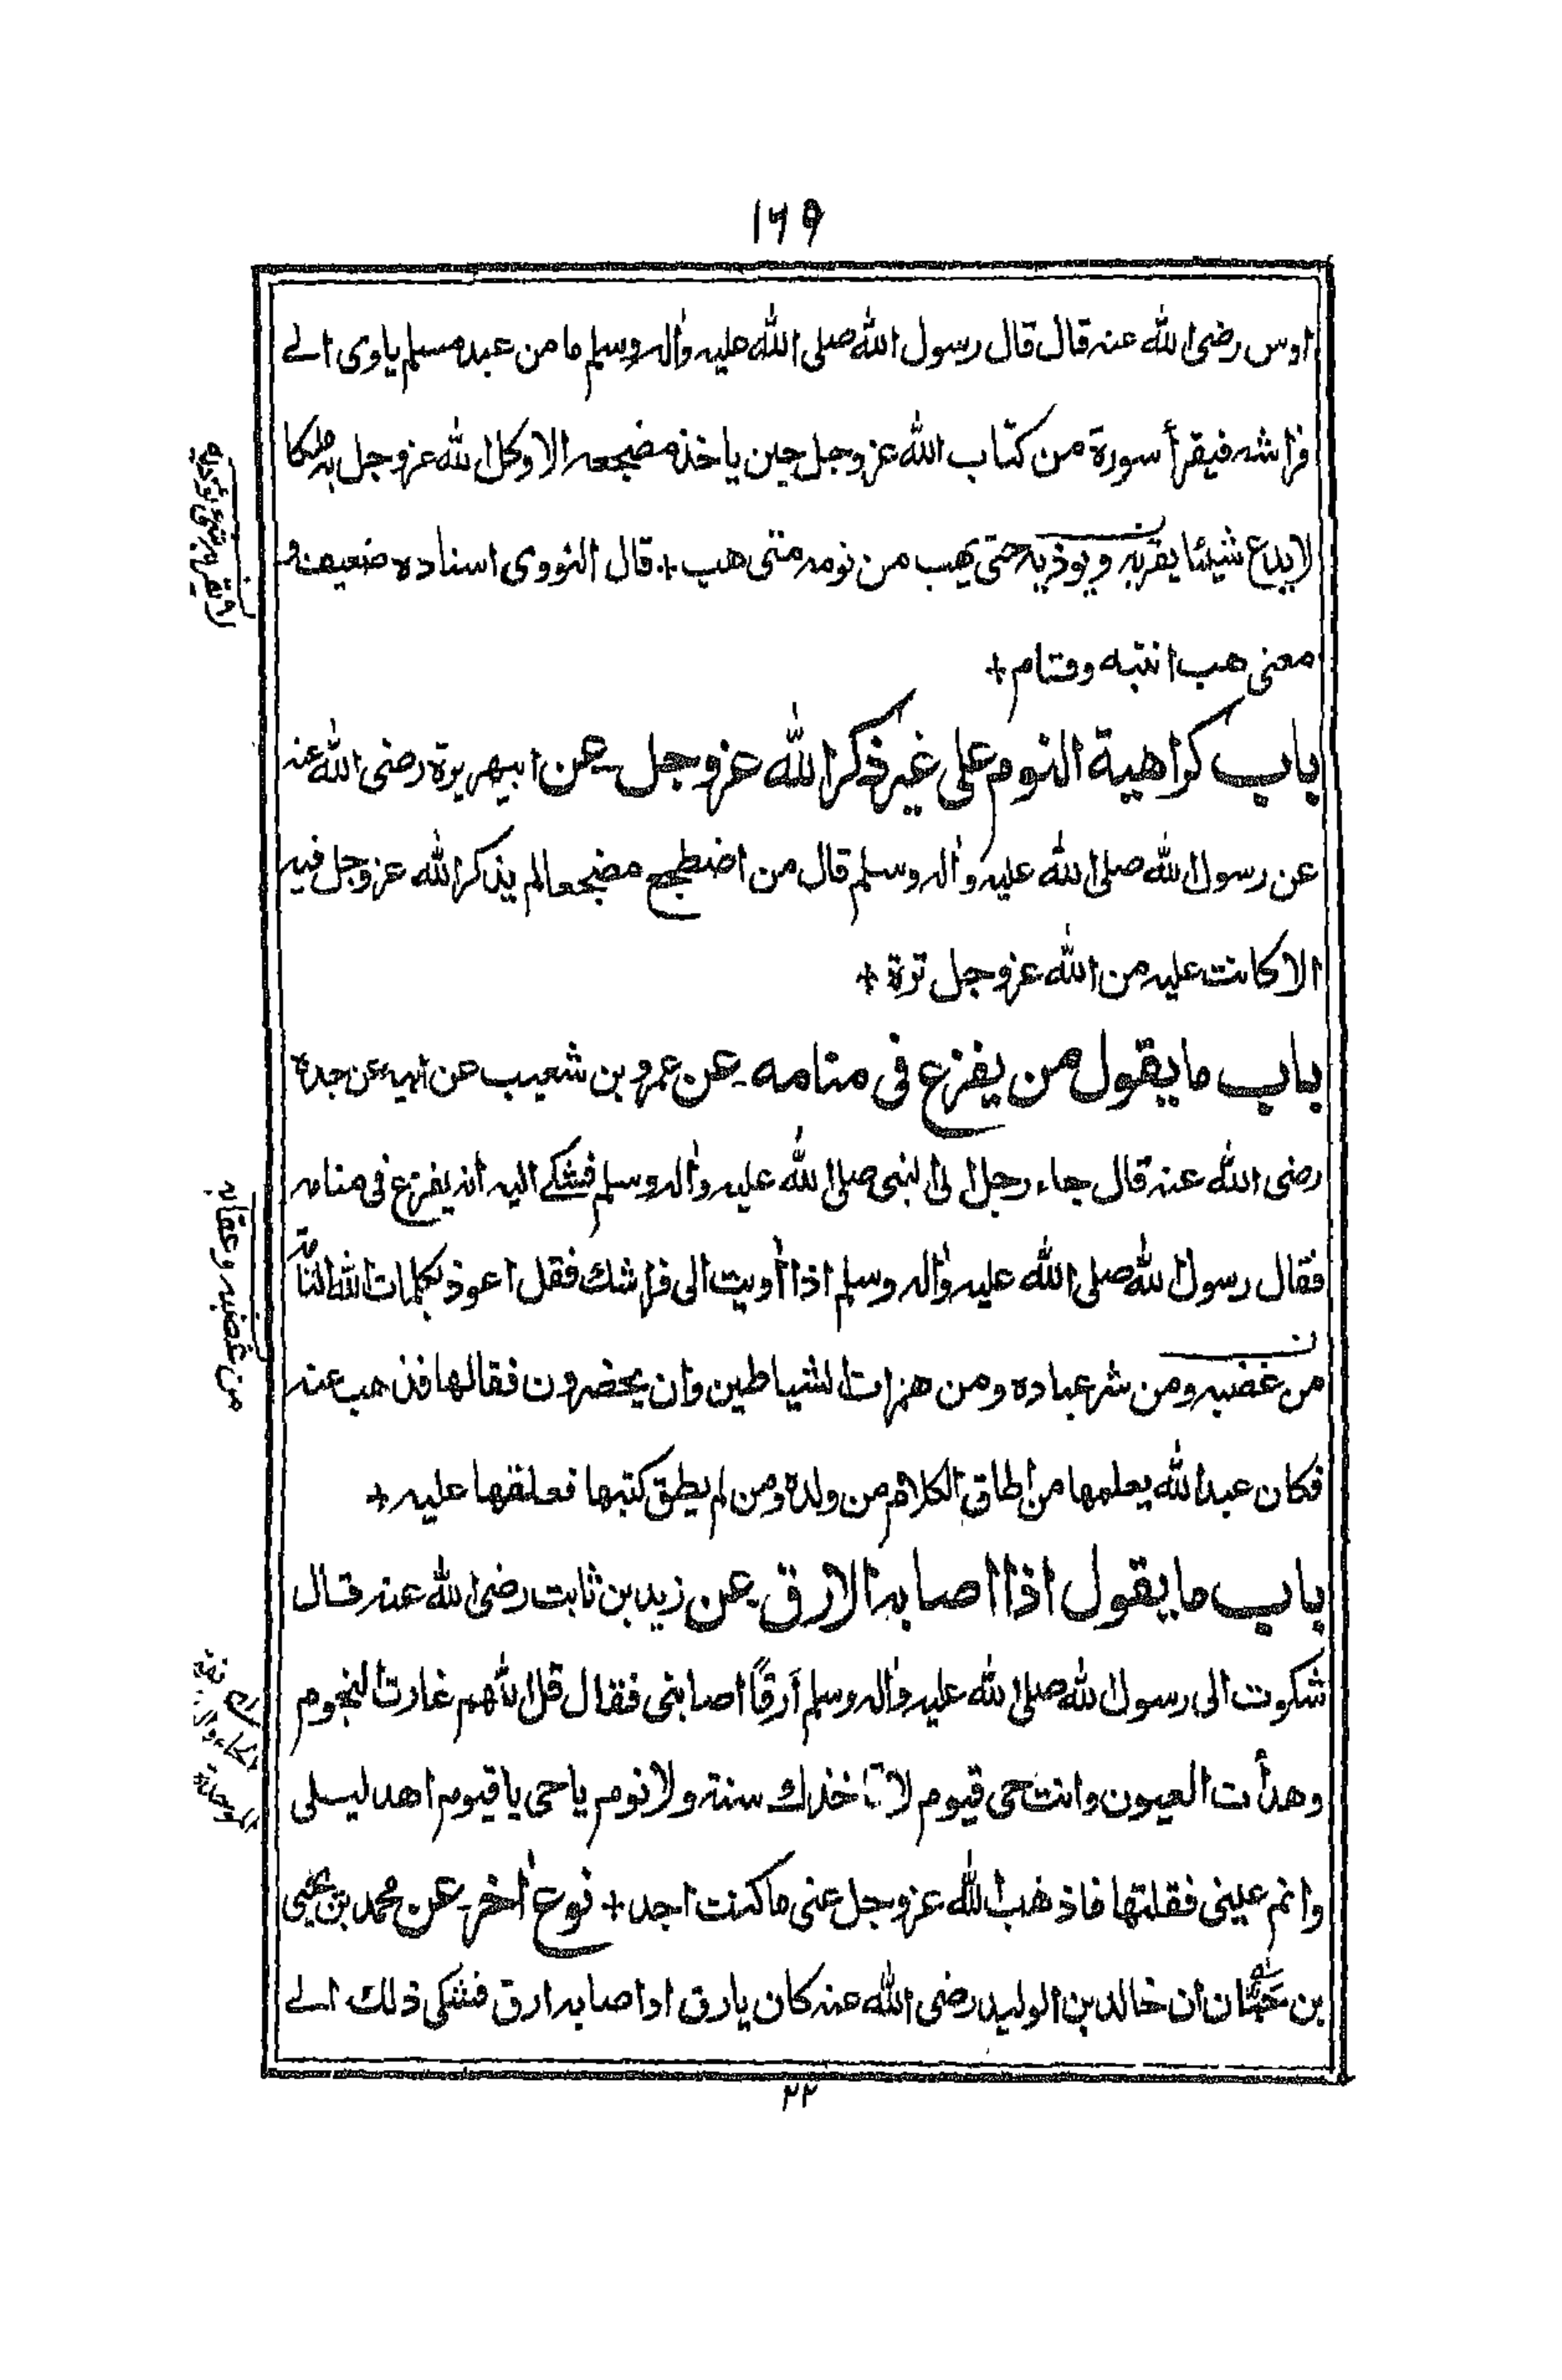 ١٦٩
اوس رضی الله عنه قال قال رسول الله صلی الله علیه واٰله وسلم ما من عبد مسلم یاوی الے
فراشه فیقرأ سورة من کتاب الله عز وجل حین یاخذ مضجعه الا وکل الله عز وجل به ملکا
لا یدع شیئا یقربه ویوذیه حتی یهب من نومه متی هب + قال النووی اسناده ضعیف و
معنی هب انتبه وقام +
باب کراهیة النوم علی غیر ذکر الله عز وجل - عن ابیهریرة رضی الله عنه
عن رسول الله صلی الله علیه واٰله وسلم قال من اضطجع مضجعا لم یذکر الله عز وجل فیه
الا کانت علیه من الله عز وجل ترة +
باب ما یقول من یفزع فی منامه - عن عمرو بن شعیب عن ابیه عن جده
رضی الله عنه قال جاء رجل الی النبی صلی الله علیه واٰله وسلم فشکے الیه انه یفزع فی منامه
فقال رسول الله صلی الله علیه واٰله وسلم اذا أویت الی فراشك فقل اعوذ بکلمات الله التامة
من غضبه ومن شر عباده ومن همزات الشیاطین وان یحضرون فقالها فذهب عنه
فکان عبد الله یعلمها من اطاق الکلام من ولده ومن لم یطق کتبها فعلقها علیه +
باب ما یقول اذا اصابه الارق - عن زید بن ثابت رضی الله عنه قال
شکوت الی رسول الله صلی الله علیه واٰله وسلم أرقاً اصابنی فقال قل اللّٰهم غارت النجوم
وهدأت العیون وانت حی قیوم لا تاخذك سنة ولا نوم یا حی یا قیوم اهد لیلی
وانم عینی فقلتها فاذهب الله عز وجل عنی ما کنت اجد + نوع اٰخر - عن محمد بن یحیی
بن حبان ان خالد بن الولید رضی الله عنه کان یارق اواصابه ارق فشکی ذلك الے
٢٢
من غضبه وعقابه